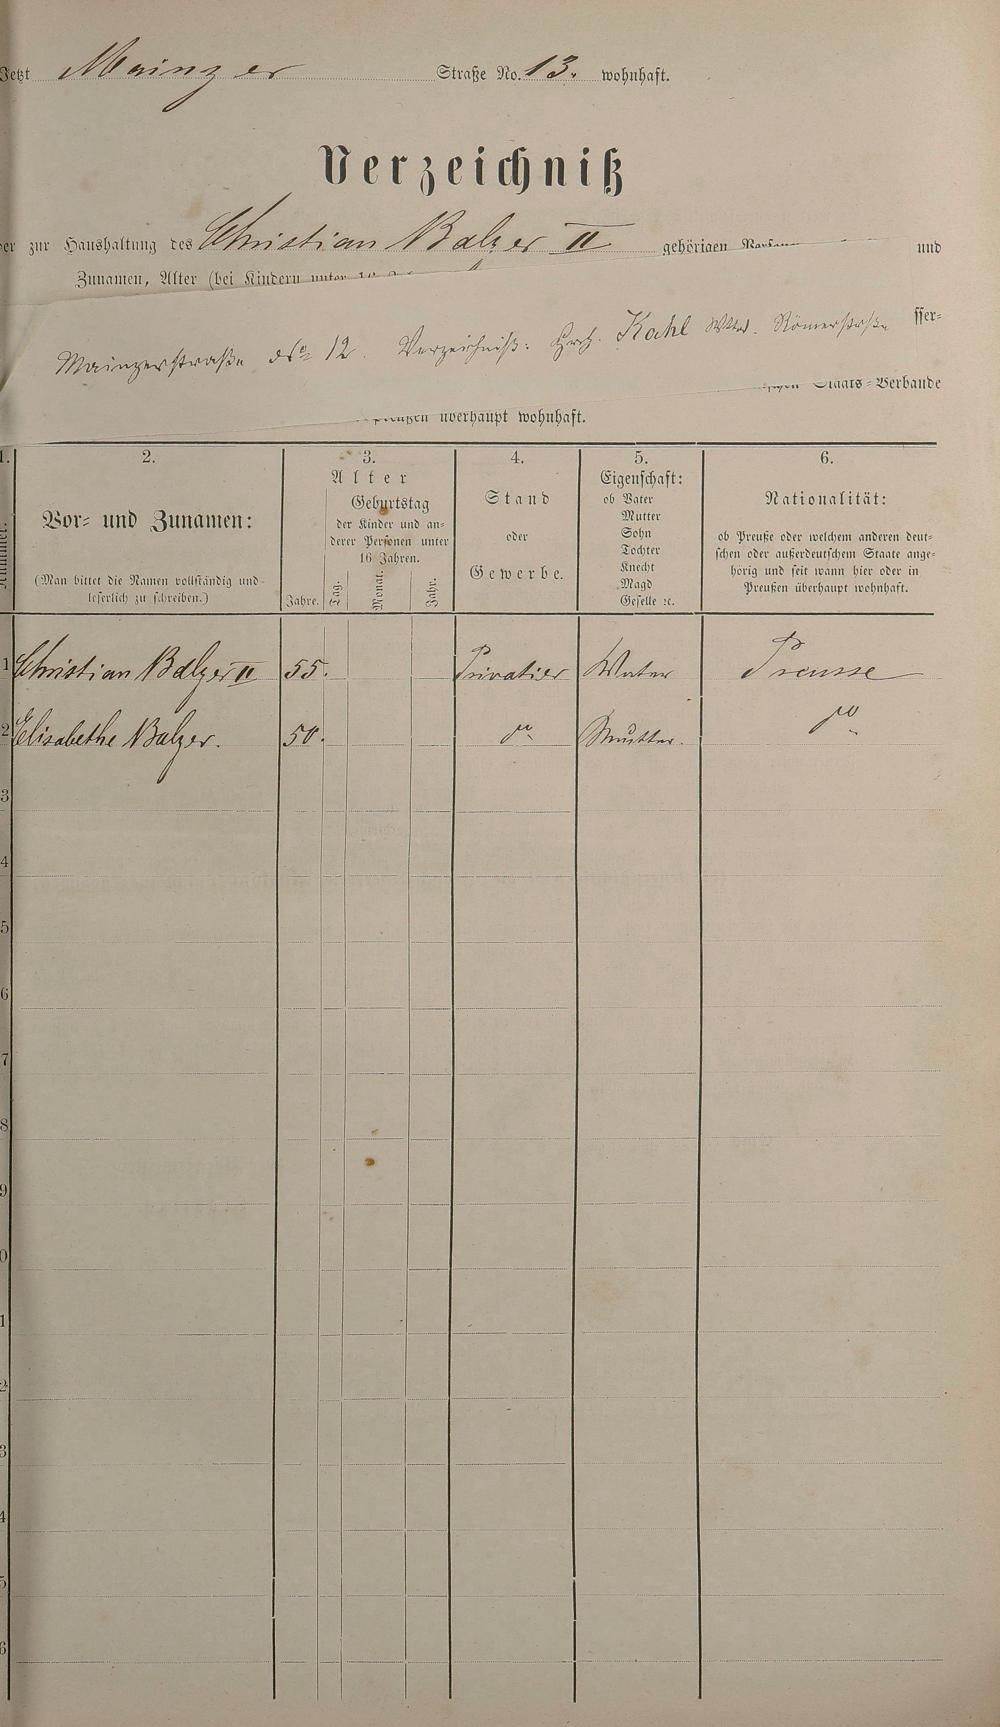 Jetzt Mainzer Straße No. 13. wohnhaft.
Verzeichniß
der zur Haushaltung des Christian Balzer II gehörigen und
Zunamen, Alter (bei Kindern unter
Mainzerstraße No 12. Verzeichniß: Kahl Wtw. Römerstraße
Staats-Verbande
überhaupt wohnhaft.
1. 2. 3. 4. 5. 6.
Nummer.
Vor- und Zunamen:
(Man bittet die Namen vollständig und
leserlich zu schreiben.)
Alter
Geburtstag
der Kinder und an-
derer Personen unter
16 Jahren.
Jahre. Tag. Monat. Jahr.
Stand
oder
Gewerbe.
Eigenschaft:
ob Vater
Mutter
Sohn
Tochter
Knecht
Magd
Geselle ꝛc.
Nationalität:
ob Preuße oder welchem anderen deut-
schen oder außerdeutschem Staate ange-
hörig und seit wann hier oder in
Preußen überhaupt wohnhaft.
1 Christian Balzer II 55. Privatier Vater Preusse
2 Elisabethe Balzer. 50. do Mutter. do
3
4
5
6
7
8
9
0
1
2
3
4
5
6